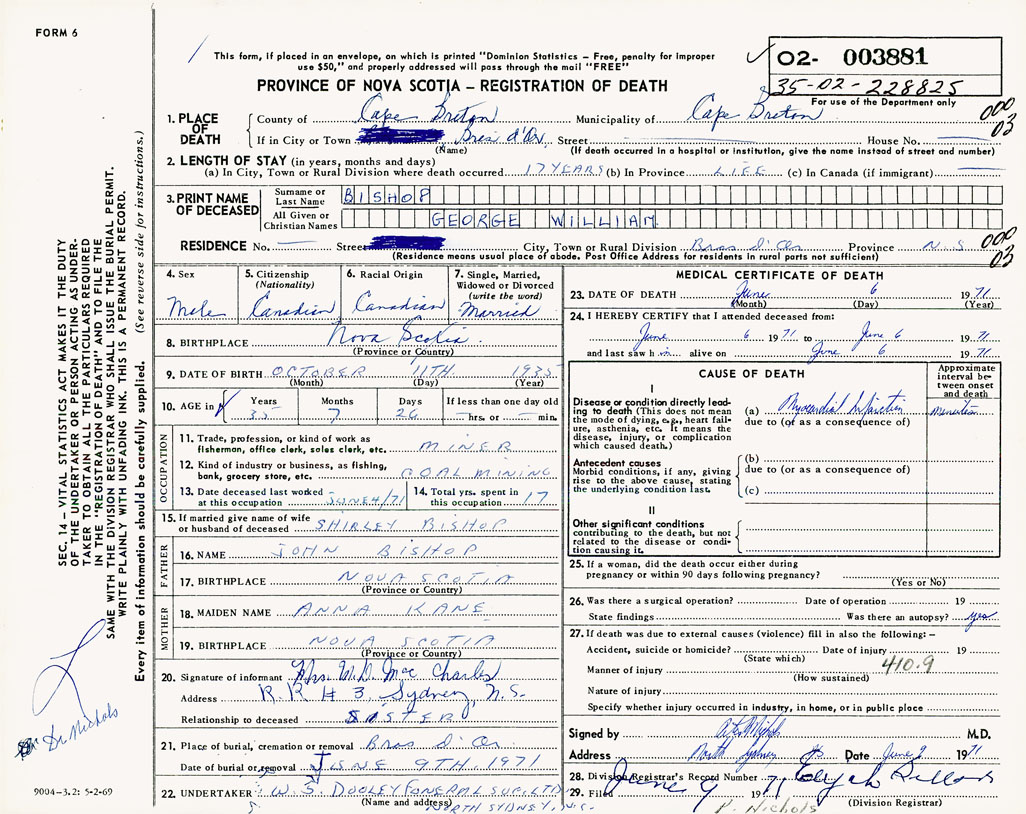 FORM 6
This form, if placed in an envelope, on which is printed "Dominion Statistics – Free, penalty for improper
use $50," and properly addressed will pass through the mail "FREE"
02- 003881
35-02-228825
For use of the Department only
PROVINCE OF NOVA SCOTIA – REGISTRATION OF DEATH
1. PLACE OF DEATH
County of Cape Breton Municipality of Cape Breton
000
03
If in City or Town Bras d'Or Street House No.
(Name) (If death occurred in a hospital or institution, give the name instead of street and number)
2. LENGTH OF STAY (in years, months and days)
(a) In City, Town or Rural Division where death occurred 17 YEARS (b) In Province LIFE (c) In Canada (if immigrant)
3. PRINT NAME OF DECEASED
Surname or Last Name BISHOP
All Given or Christian Names GEORGE WILLIAM
RESIDENCE No. Street City, Town or Rural Division Bras d'Or Province N.S.
000
03
(Residence means usual place of abode. Post Office Address for residents in rural parts not sufficient)
4. Sex
Male
5. Citizenship
(Nationality)
Canadian
6. Racial Origin
Canadian
7. Single, Married,
Widowed or Divorced
(write the word)
Married
8. BIRTHPLACE Nova Scotia
(Province or Country)
9. DATE OF BIRTH OCTOBER 11TH 1935
(Month) (Day) (Year)
10. AGE in
Years Months Days If less than one day old
35 7 26 hrs. or min.
OCCUPATION
11. Trade, profession, or kind of work as
fisherman, office clerk, sales clerk, etc. MINER
12. Kind of industry or business, as fishing,
bank, grocery store, etc. COAL MINING
13. Date deceased last worked
at this occupation JUNE 4/71
14. Total yrs. spent in
this occupation 17
15. If married give name of wife
or husband of deceased SHIRLEY BISHOP
FATHER
16. NAME JOHN BISHOP
17. BIRTHPLACE NOVA SCOTIA
(Province or Country)
MOTHER
18. MAIDEN NAME ANNA KANE
19. BIRTHPLACE NOVA SCOTIA
(Province or Country)
20. Signature of informant Mrs. W.D. MacCharles
Address R.R # 3, Sydney, N.S.
Relationship to deceased SISTER
21. Place of burial, cremation or removal Bras d'Or
Date of burial or removal JUNE 9TH 1971
22. UNDERTAKER W. J. DOOLEY FUNERAL SUP. LTD
(Name and address) NORTH SYDNEY, N.S.
MEDICAL CERTIFICATE OF DEATH
23. DATE OF DEATH June 6 1971
(Month) (Day) (Year)
24. I HEREBY CERTIFY that I attended deceased from:
June 6 1971 to June 6 1971
and last saw him alive on June 6 1971
CAUSE OF DEATH
Approximate
interval be-
tween onset
and death
I
Disease or condition directly lead-
ing to death (This does not mean
the mode of dying, e.g., heart fail-
ure, asthenia, etc. It means the
disease, injury, or complication
which caused death.)
(a) Myocardial Infarction
due to (or as a consequence of)
Antecedent causes
Morbid conditions, if any, giving
rise to the above cause, stating
the underlying condition last.
(b)
due to (or as a consequence of)
(c)
II
Other significant conditions
contributing to the death, but not
related to the disease or condi-
tion causing it.
25. If a woman, did the death occur either during
pregnancy or within 90 days following pregnancy?
(Yes or No)
26. Was there a surgical operation? Date of operation 19
State findings Was there an autopsy? yes
27. If death was due to external causes (violence) fill in also the following: –
Accident, suicide or homicide? Date of injury 19
(State which)
Manner of injury 410.9
(How sustained)
Nature of injury
Specify whether injury occurred in industry, in home, or in public place
Signed by M.D.
Address North Sydney NS Date June 9 1971
28. Division Registrar's Record Number
29. Filed June 9 1971
(Division Registrar)
P. Nichols
SEC. 14 – VITAL STATISTICS ACT MAKES IT THE DUTY
OF THE UNDERTAKER OR PERSON ACTING AS UNDER-
TAKER TO OBTAIN ALL THE PARTICULARS REQUIRED
IN THE "REGISTRATION OF DEATH" AND TO FILE THE
SAME WITH THE DIVISION REGISTRAR WHO SHALL ISSUE THE BURIAL PERMIT.
WRITE PLAINLY WITH UNFADING INK. THIS IS A PERMANENT RECORD.
Every item of information should be carefully supplied. (See reverse side for instructions.)
Dr Nichols
9004-3.2: 5-2-69